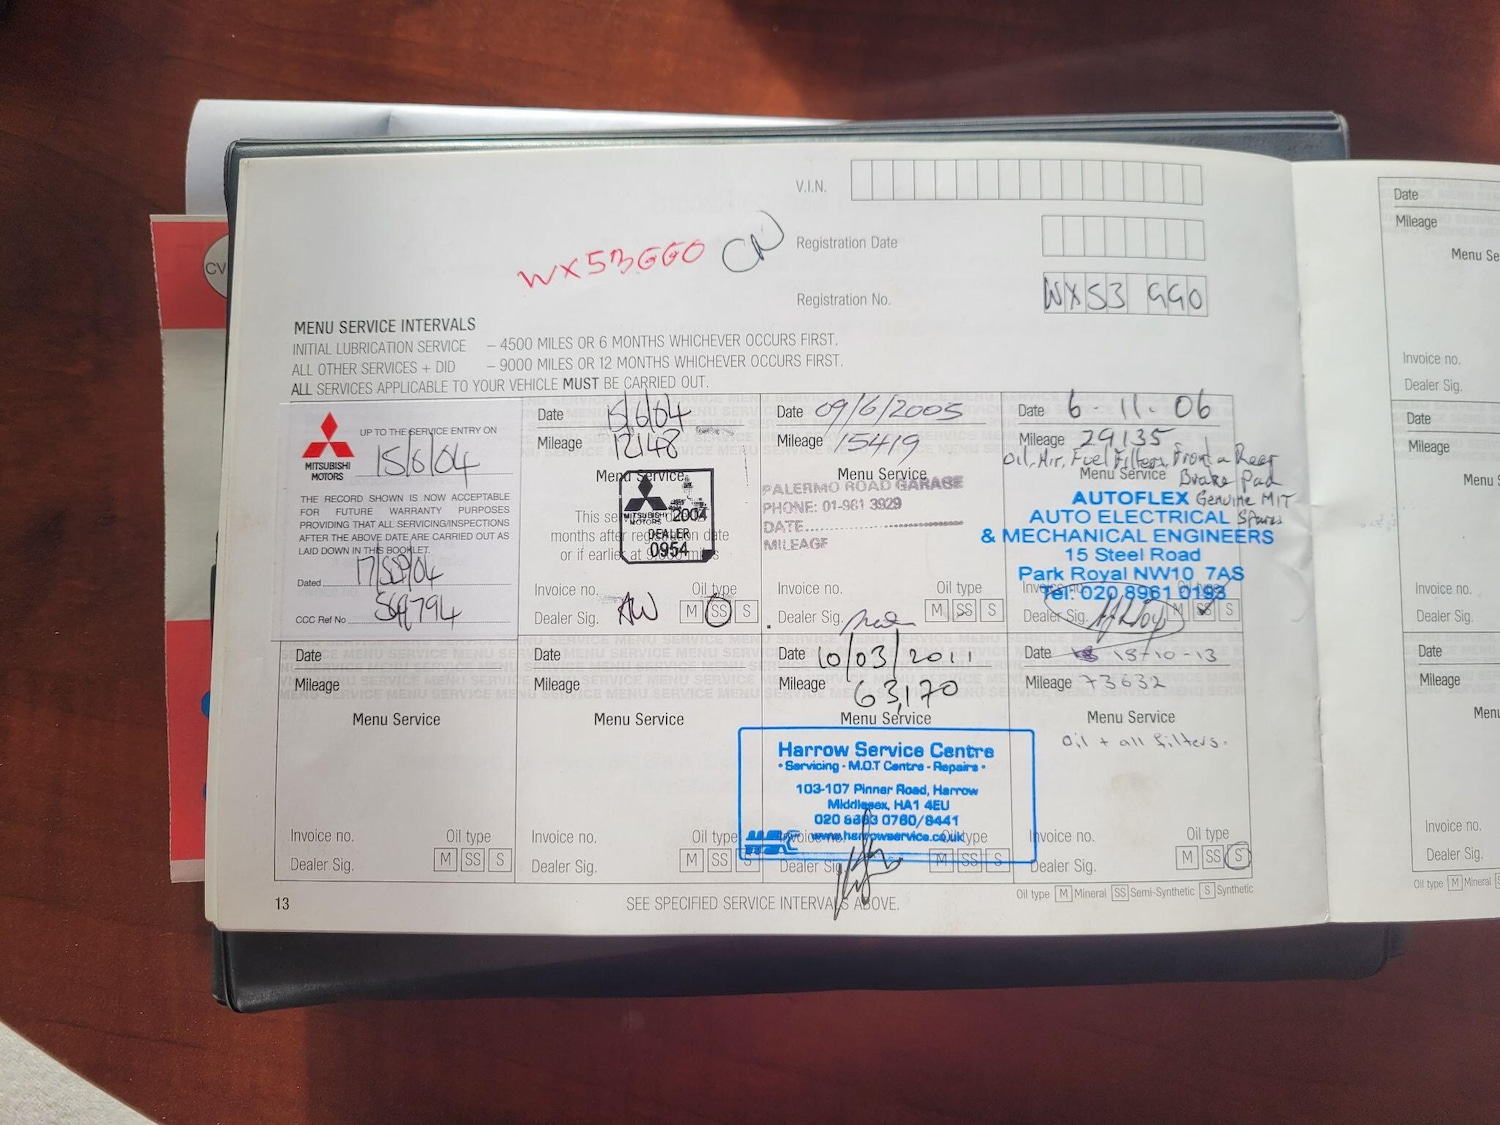 V.I.N.
CV
WX53GGO CN
Registration Date
Registration No. WX53 GGO
MENU SERVICE INTERVALS
INITIAL LUBRICATION SERVICE – 4500 MILES OR 6 MONTHS WHICHEVER OCCURS FIRST.
ALL OTHER SERVICES + DID – 9000 MILES OR 12 MONTHS WHICHEVER OCCURS FIRST.
ALL SERVICES APPLICABLE TO YOUR VEHICLE MUST BE CARRIED OUT.
MITSUBISHI
MOTORS
UP TO THE SERVICE ENTRY ON
15/6/04
THE RECORD SHOWN IS NOW ACCEPTABLE
FOR FUTURE WARRANTY PURPOSES
PROVIDING THAT ALL SERVICING/INSPECTIONS
AFTER THE ABOVE DATE ARE CARRIED OUT AS
LAID DOWN IN THIS BOOKLET.
Dated 17/SEP/04
CCC Ref No
Date 15/6/04
Mileage 12148
Menu Service
This
months after date
or if earlier at
MITSUBISHI
MOTORS 2004
DEALER
0954
Invoice no. Oil type
Dealer Sig. AW M SS S
Date 09/6/2005
Mileage 15419
Menu Service
PALERMO ROAD GARAGE
PHONE: 01-961 3929
DATE
MILEAGE
Invoice no. Oil type
Dealer Sig. M SS S
Date 6-11-06
Mileage 29135
Oil, Air, Fuel Filters, Front & Rear
Menu Service Brake Pad
AUTOFLEX Genuine MIT
AUTO ELECTRICAL Spares
& MECHANICAL ENGINEERS
15 Steel Road
Park Royal NW10 7AS
Tel: 020 8961 0193
Dealer Sig. M SS S
Date
Mileage
Menu Service
Invoice no. Oil type
Dealer Sig. M SS S
Date
Mileage
Menu Service
Invoice no. Oil type
Dealer Sig. M SS S
Date 10/03/2011
Mileage 63,170
Menu Service
Harrow Service Centre
• Servicing - M.O.T Centre - Repairs •
103-107 Pinner Road, Harrow
Middlesex, HA1 4EU
020 8863 0760/8441
www.harrowservice.co.uk
Invoice no. Oil type
Dealer Sig. M SS S
Date 15-10-13
Mileage 73632
Menu Service
Oil + all filters.
Invoice no. Oil type
Dealer Sig. M SS S
13
SEE SPECIFIED SERVICE INTERVALS ABOVE.
Oil type M Mineral SS Semi-Synthetic S Synthetic
Date
Mileage
Menu Se
Invoice no.
Dealer Sig.
Date
Mileage
Menu S
Invoice no.
Dealer Sig.
Date
Mileage
Menu
Invoice no.
Dealer Sig.
Oil type M Mineral